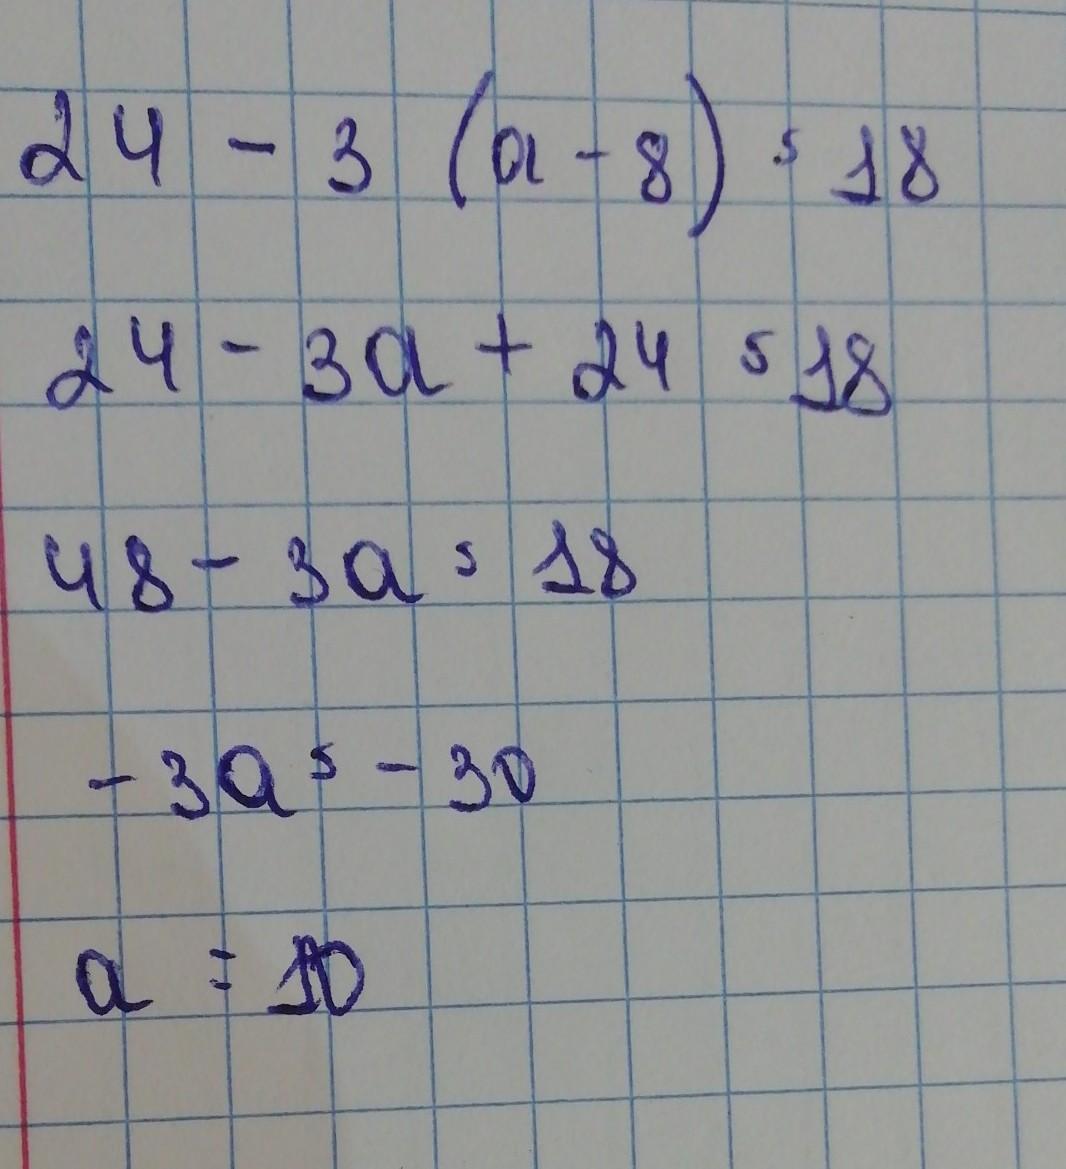 24 - 3 (a - 8) = 18
24 - 3a + 24 = 18
48 - 3a = 18
- 3a = - 30
a = 10